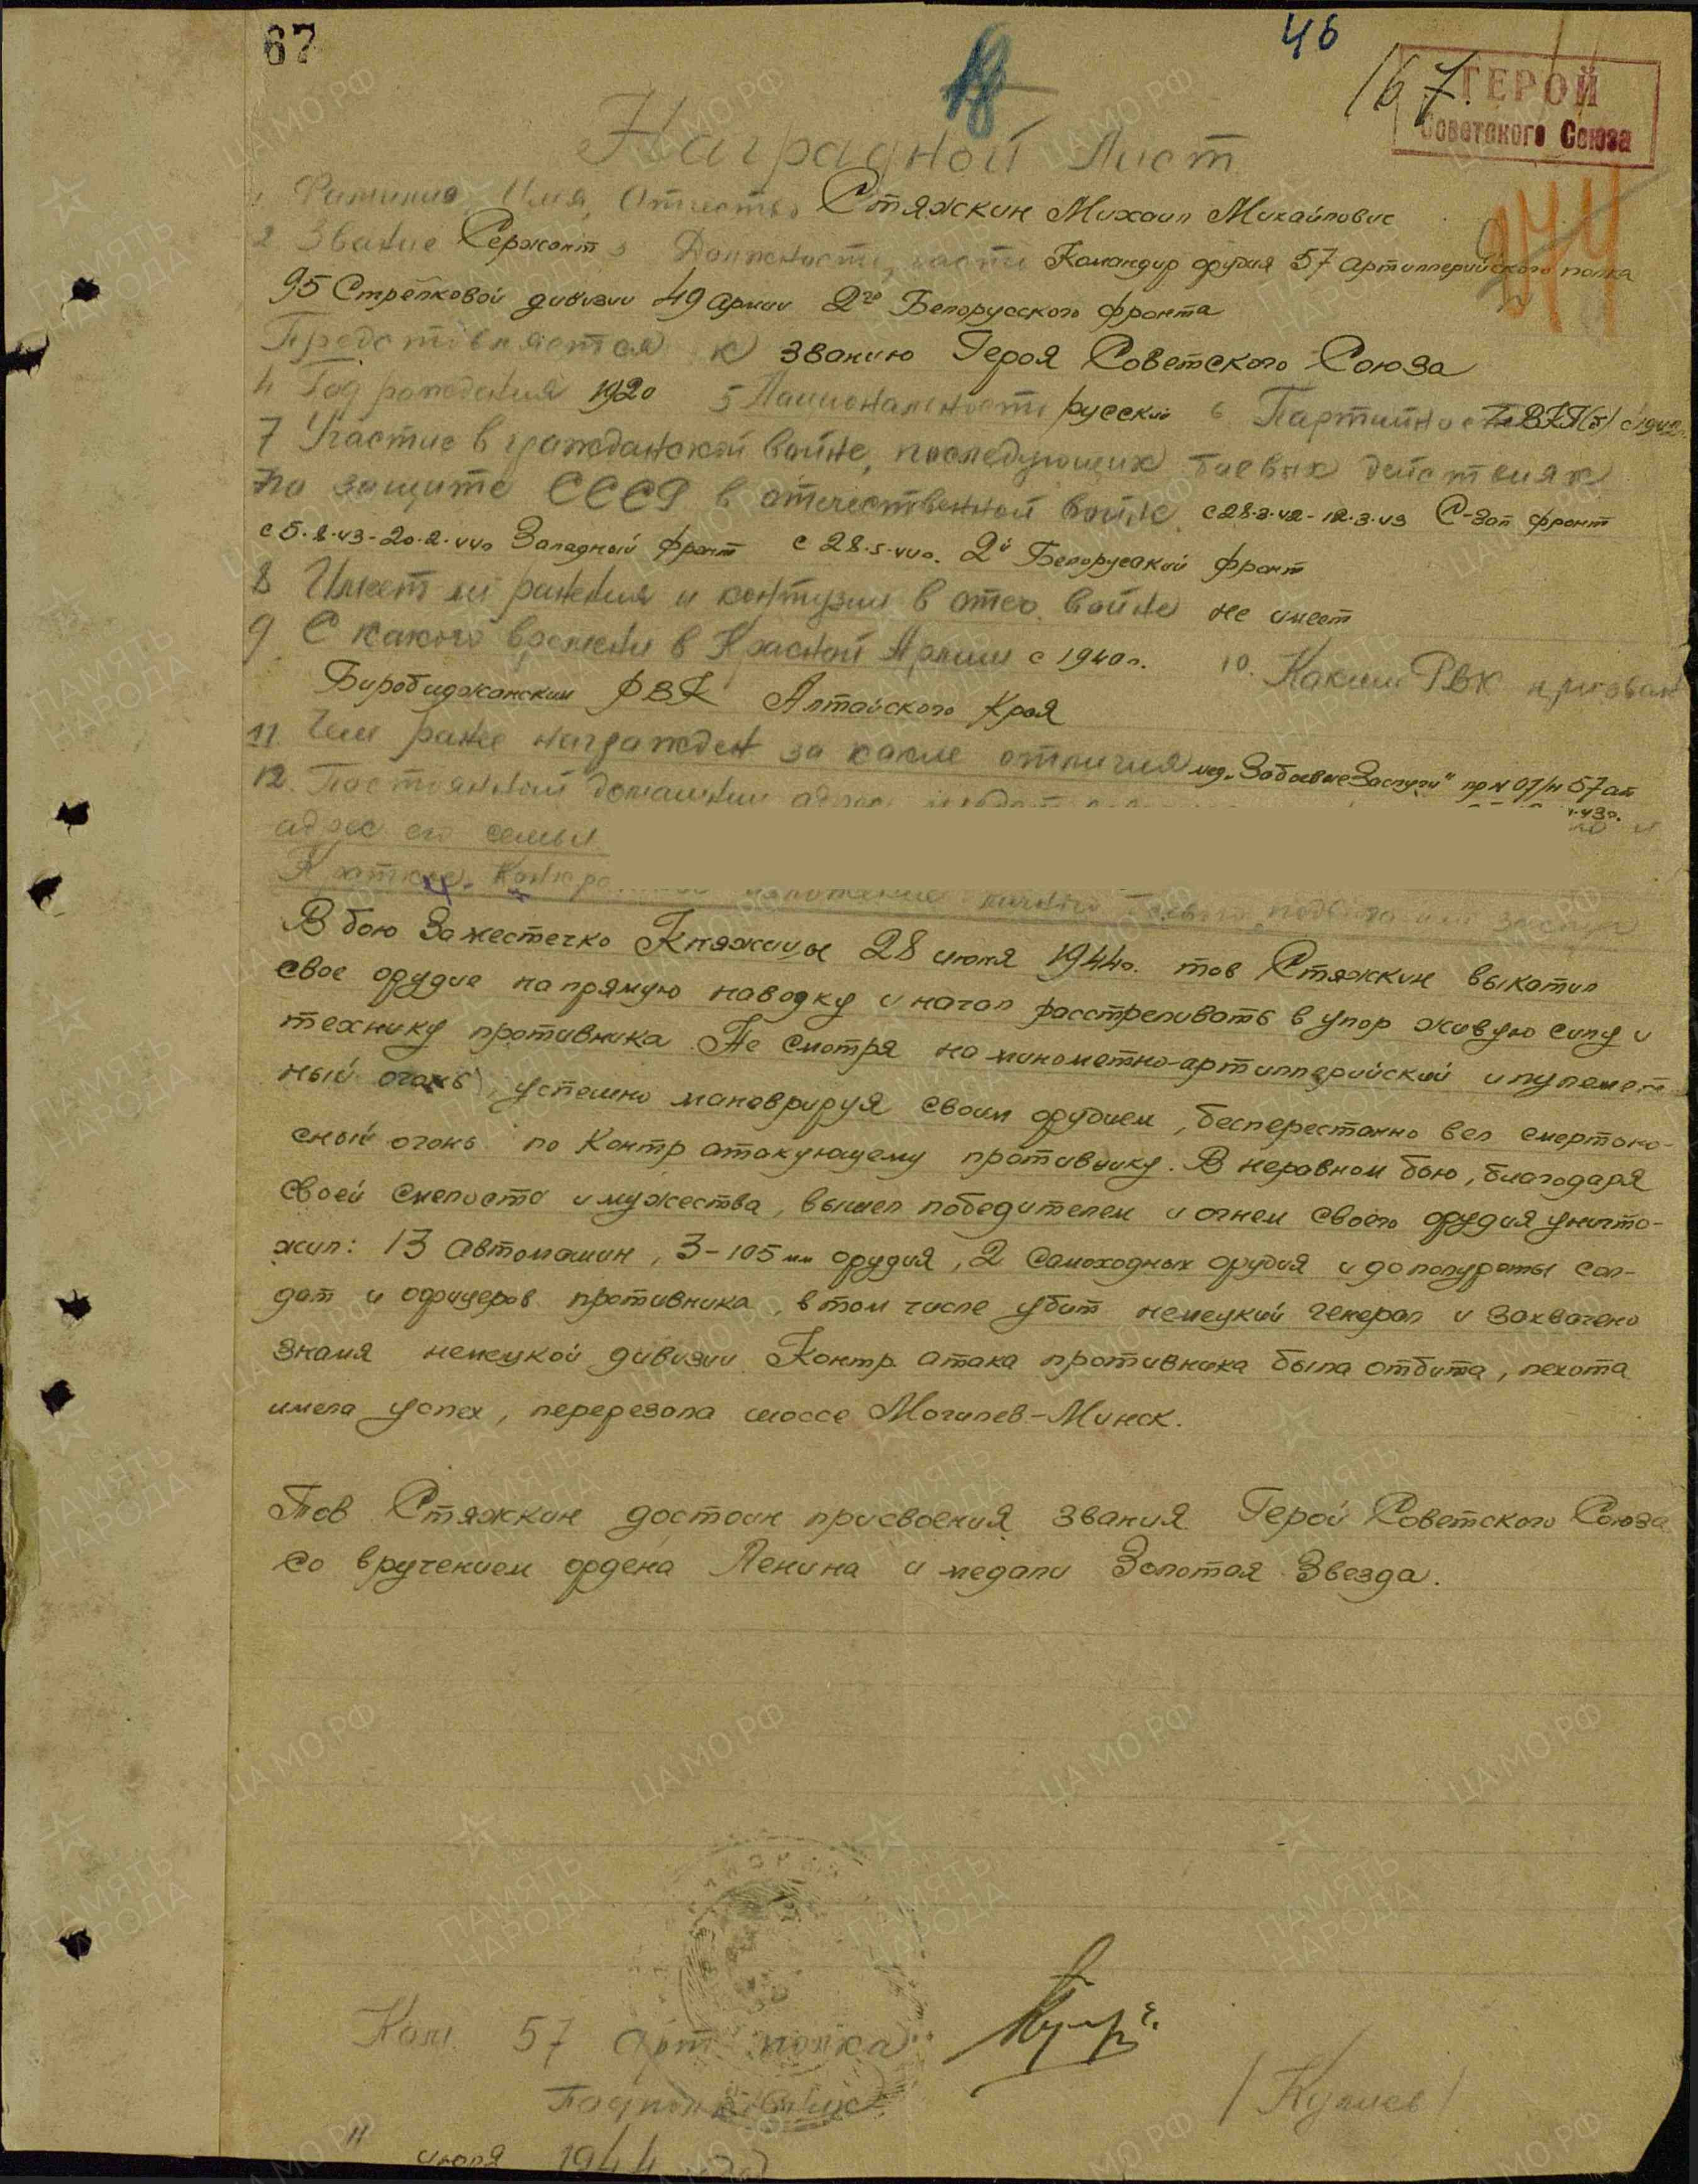 67
46
167.
ГЕРОЙ
Советского Союза
Наградной Лист
1 Фамилия, Имя, Отчество Стяжкин Михаил Михайлович
2 Звание Сержант 3 Должность, часть Командир орудия 57 Артиллерийского полка
95 Стрелковой дивизии 49 Армии 2го Белорусского фронта
Представляется к званию Героя Советского Союза
4 Год рождения 1920 5 Национальность русский 6 Партийность ВКП(б) с 1942
7 Участие в гражданской войне, последующих боевых действиях
по защите СССР в отечественной войне с 28.3.42-12.3.43 С-Зап фронт
с 5.8.43-20.2.44г Западный фронт с 28.5.44г. 2й Белорусский фронт
8 Имеет ли ранения и контузии в отеч. войне не имеет
9 С какого времени в Красной Армии с 1940г. 10. Каким РВК призван
Биробиджанским РВК Алтайского Края
11 Чем ранее награжден за какие отличия мед. "За боевые Заслуги" пр № 07/н 57 ап
43г.
12. Постоянный домашний адрес
адрес его семьи
Краткое, изложение личного боевого подвига или заслуг
В бою за местечко Княжицы 28 июня 1944г. тов Стяжкин выкатил
свое орудие на прямую наводку и начал расстреливать в упор живую силу и
технику противника. Не смотря на минометно-артиллерийский и пулемет-
ный огонь, успешно маневрируя своим орудием, бесперестанно вел смертоно-
сный огонь по Контр атакующему противнику. В неравном бою, благодаря
своей смелости и мужества, вышел победителем и огнем своего орудия уничто-
жил: 13 автомашин, 3-105 мм орудия, 2 самоходных орудия и до полуроты сол-
дат и офицеров противника, в том числе убит немецкий генерал и захвачено
знамя немецкой дивизии. Контр атака противника была отбита, пехота
имела успех, перерезала шоссе Могилев-Минск.
Тов Стяжкин достоин присвоения звания Герой Советского Союза
со вручением ордена Ленина и медали Золотая Звезда.
Ком. 57 арт полка
Подполковник
/Кулиев/
11 июля 1944